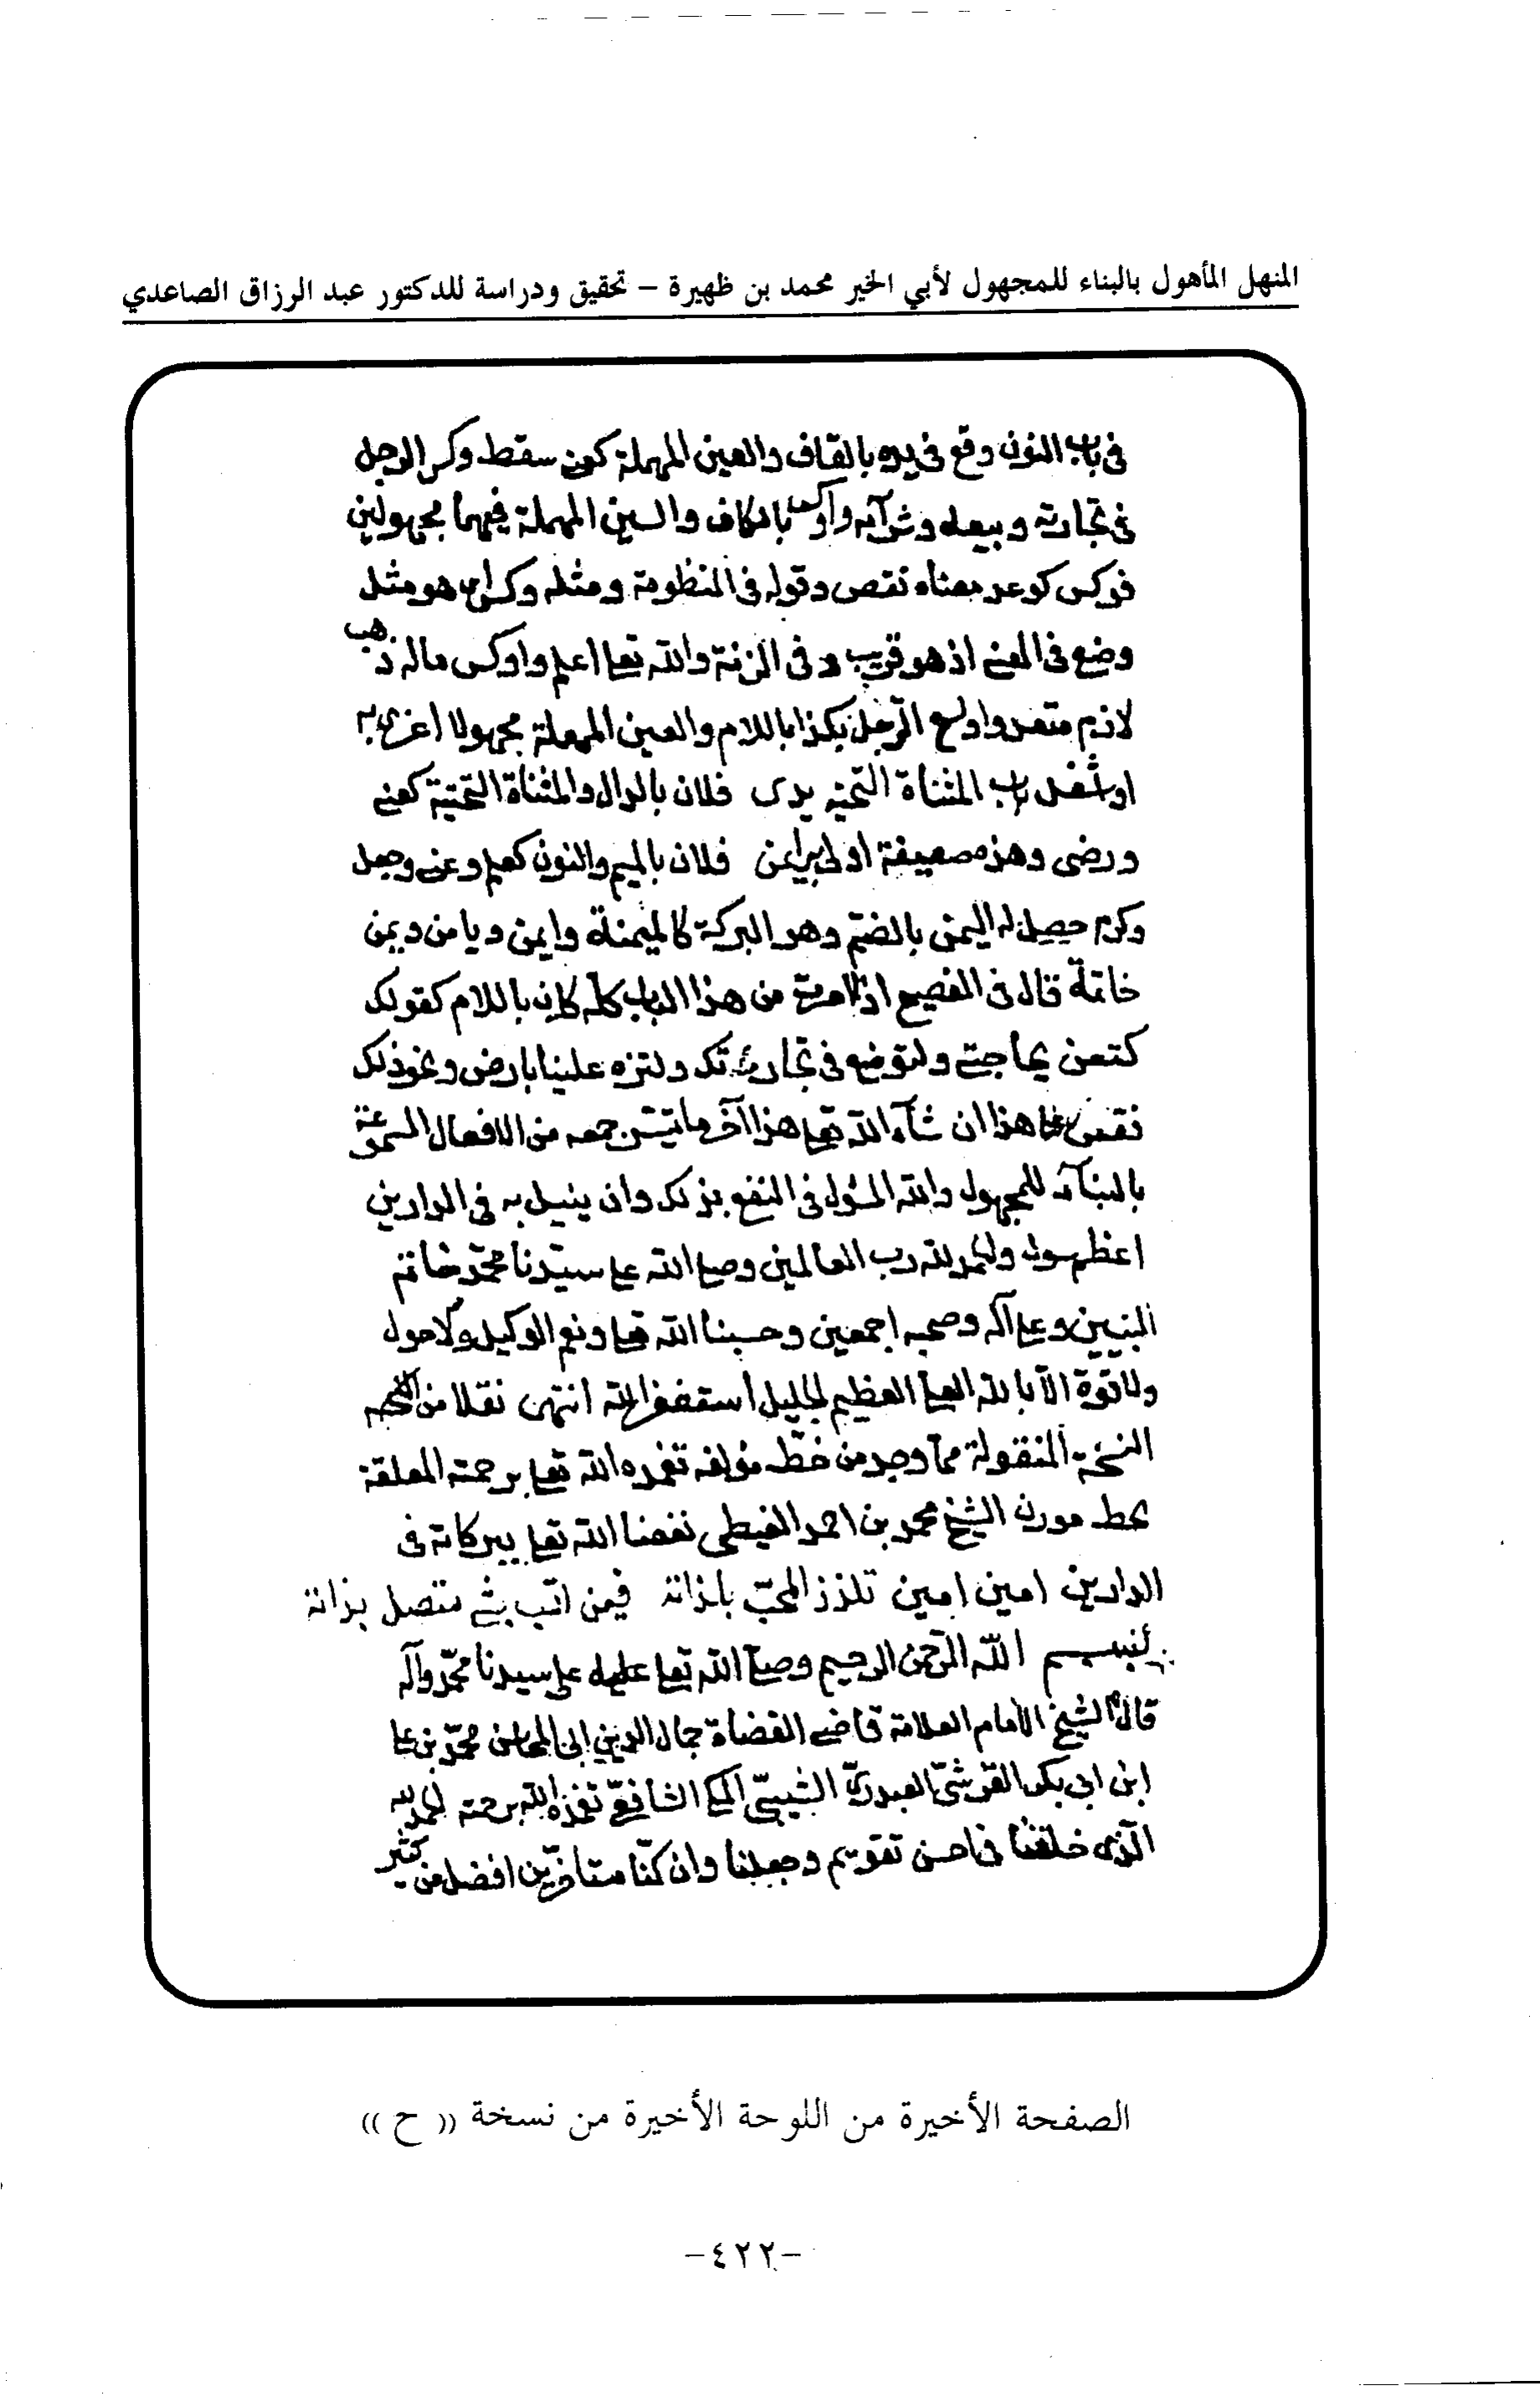 المنهل المأهول بالبناء للمجهول لأبي الخير محمد بن ظهيرة – تحقيق ودراسة للدكتور عبد الرزاق الصاعدي
فى باب النون وقع فى يده بالقاف والعين المهملة كعن سقط وكس الرجل
فى تجارته وبيعه وشرآيه واوكس بالكاف والسين المهملة فيهما مجهولين
فوكس كوعد معناه نقص وقوله فى المنظومة ومثله وكس اى هو مثل
وضع فى المعنى اذ هو قريب و فى الزنة والله تعا اعلم واوكس ماله ذهب
لازم متعد واولع الرجل بكذا باللام والعين المهملة مجهولا اغرى به
او شغل باب المثناة التحتية يدى فلان بالدال والمثناة التحتية كعنى
ورضى وهذه ضعيفة فلان بالميم والنون كعلم وعنى وجعل
وكرم حصل له اليمن بالضم وهو البركة كالميمنة وايمن ويامن ويمن
خاتمة قال فى الفصيح اذا امرت من هذا الباب كله كان باللام كقولك
لتعن بحاجتى ولتوضع فى تجارتك ولتزه علينا يا رجل ونحو ذلك
فقس على هذا ان شآء الله تعا هذا آخر ما تيسر جمعه من الافعال المسموعة
بالبنآء للمجهول والله المسؤل فى النفع بذلك وان ينيل به فى الدارين
اعظم سول والحمد لله رب العالمين وصلى الله على سيدنا محمد خاتم
النبيين وعلى آله وصحبه اجمعين وحسبنا الله تعا ونعم الوكيل ولا حول
ولا قوة الا بالله العلى العظيم الجليل استغفر الله انتهى نقلا من
النسخة المنقولة مما وجد من خط مؤلفه تغمده الله تعا برحمته المعلقة
بخط الشيخ محمد بن احمد الغيطى نفعنا الله تعا ببركاته فى
الدارين امين امين تلذذ المحب بلذاته فيمن احب بشى متصل بذاته
بسم الله الرحمن الرحيم وصلى الله تعا عليه على سيدنا محمد وآله
قال الشيخ الامام العلامة قاضى القضاة جمال الدين ابى المحاسن محمد بن على
ابن ابى بكر القرشى العبدرى الشيبى المكى الشافعى تغمده الله برحمته الحمد لله
الذى خلقنا فى احسن تقويم وجعلنا وان كنا متاخرين افضل من كثير
الصفحة الأخيرة من اللوحة الأخيرة من نسخة (( ح ))
-٤٢٢-